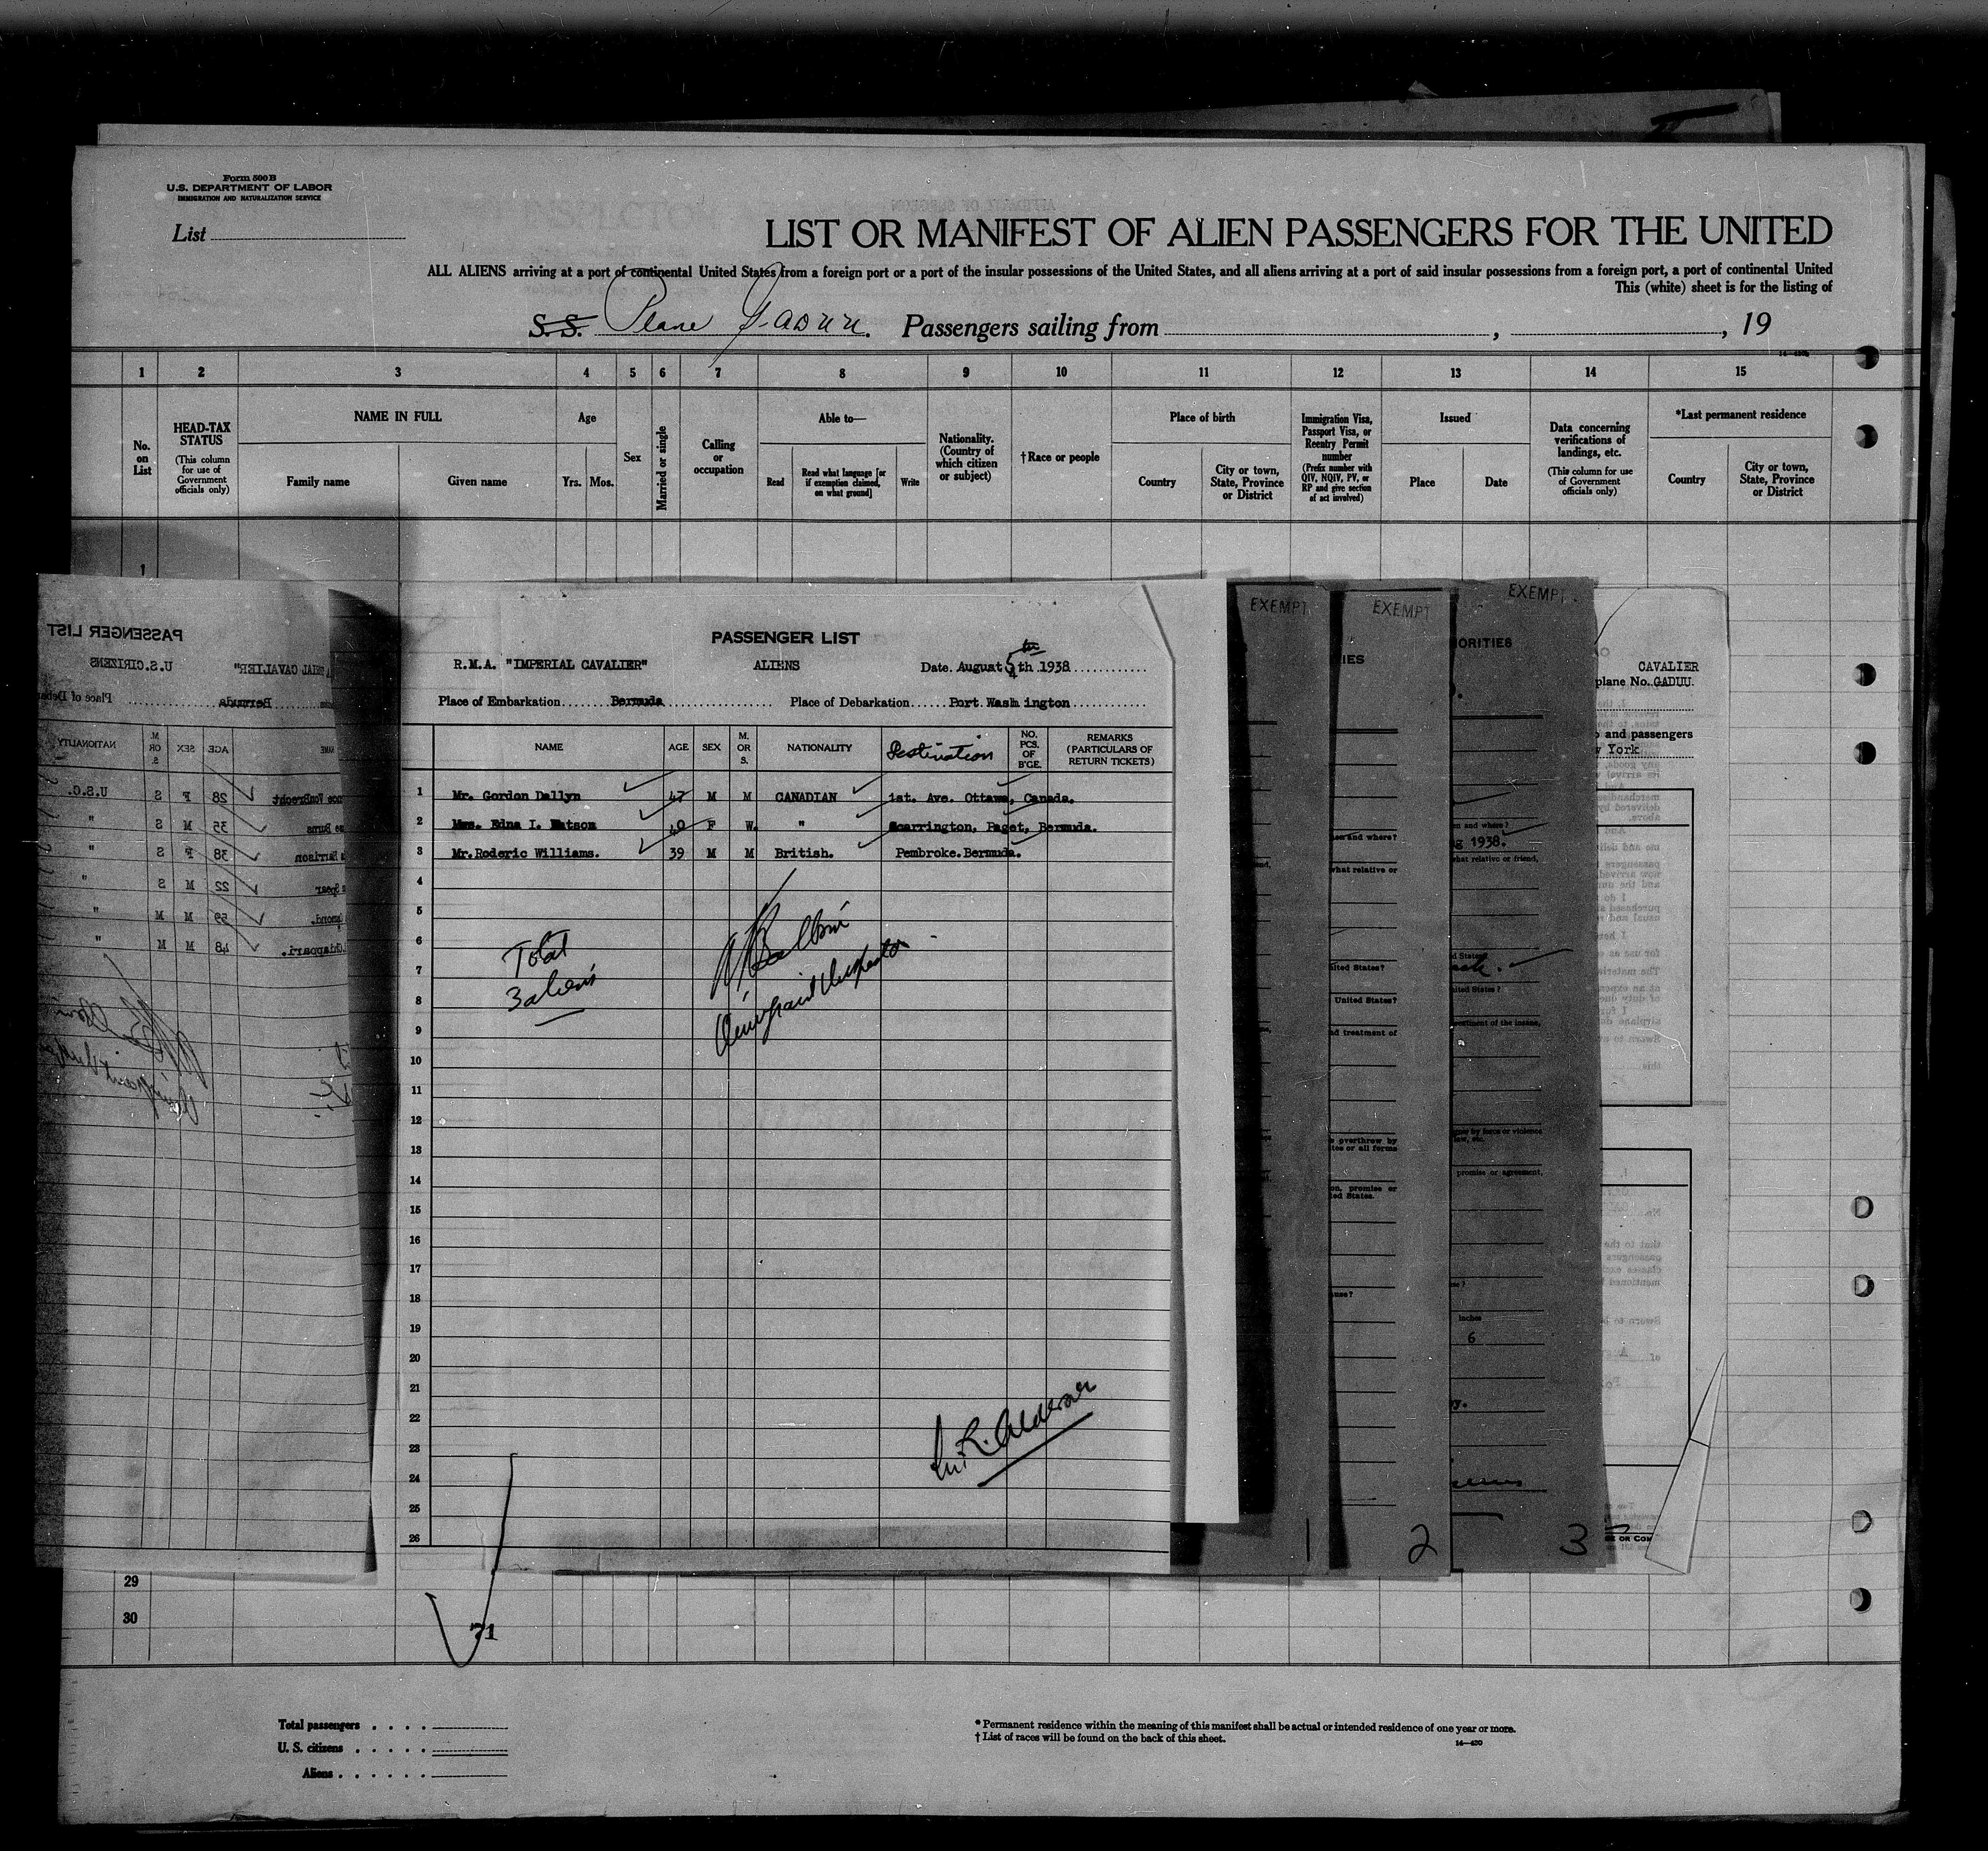 Form 500 B
U.S. DEPARTMENT OF LABOR
IMMIGRATION AND NATURALIZATION SERVICE
List
LIST OR MANIFEST OF ALIEN PASSENGERS FOR THE UNITED
ALL ALIENS arriving at a port of continental United States from a foreign port or a port of the insular possessions of the United States, and all aliens arriving at a port of said insular possessions from a foreign port, a port of continental United
This (white) sheet is for the listing of
S.S. Plane Gaduu. Passengers sailing from , , 19
14—430b
1 2 3 4 5 6 7 8 9 10 11 12 13 14 15
No. on List
HEAD-TAX STATUS (This column for use of Government officials only)
NAME IN FULL
Family name Given name
Age
Yrs. Mos.
Sex
Married or single
Calling or occupation
Able to—
Read Read what language [or if exemption claimed, on what ground] Write
Nationality. (Country of which citizen or subject)
†Race or people
Place of birth
Country City or town, State, Province or District
Immigration Visa, Passport Visa, or Reentry Permit number (Prefix number with QIV, NQIV, PV, or RP and give section of act involved)
Issued
Place Date
Data concerning verifications of landings, etc. (This column for use of Government officials only)
*Last permanent residence
Country City or town, State, Province or District
1
PASSENGER LIST
U.S. CIRIZENS
CAVALIER"
Bermuda
Place of
AGE SEX M OR S. NATIONALITY
VonBrecht 28 F S U.S.C.
Burns 35 M S "
Harrison 38 F S "
Spear 22 M S "
59 M M "
Chiappari. 48 M M "
PASSENGER LIST
R.M.A. "IMPERIAL CAVALIER" ALIENS Date. August 5th 4th 1938
Place of Embarkation Bermuda Place of Debarkation Port Wash ington
NAME AGE SEX M. OR S. NATIONALITY Destination NO. PCS. OF B'GE. REMARKS (PARTICULARS OF RETURN TICKETS)
1 Mr. Gordon Dallyn 47 M M CANADIAN 1st. Ave. Ottawa, Canada.
2 Mrs. Edna I. Watson 40 F W. " Scarrington, Paget, Bermuda.
3 Mr. Roderic Williams. 39 M M British. Pembroke. Bermuda.
4
5
6
7
8
9
10
11
12
13
14
15
16
17
18
19
20
21
22
23
24
25
26
Total
3 aliens
EXEMPT
EXEMPT
EXEMPT
ORITIES
IES
CAVALIER
plane No. GADUU.
and passengers
York
en and where?
1938.
hat relative or friend,
what relative or
United States?
nd treatment of
overthrow by
promise or agreement,
on, promise or
ed States.
inches
6
1
2
3
29
30
71
Total passengers
U. S. citizens
Aliens
* Permanent residence within the meaning of this manifest shall be actual or intended residence of one year or more.
† List of races will be found on the back of this sheet.
14—430